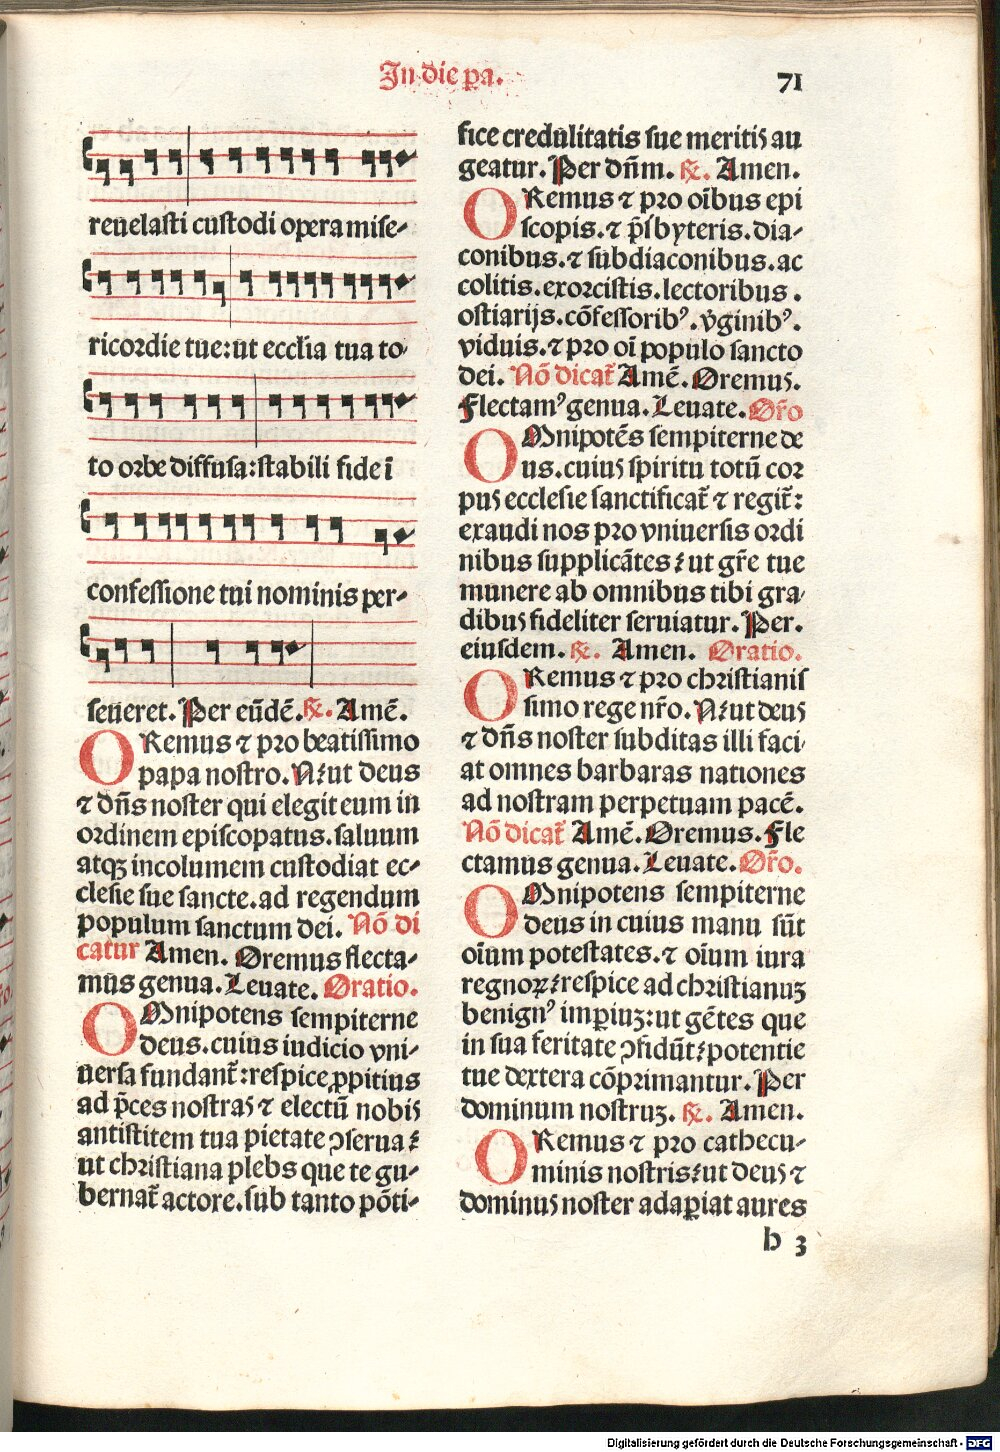 In die pa.
71
reuelasti custodi opera mise-
ricordie tue: ut ecclia tua to-
to orbe diffusa: stabili fide ī
confessione tui nominis per-
seueret. Per eūdē. ℟. Amē.
ORemus ⁊ pro beatissimo
papa nostro. N: ut deus
⁊ dn̄s noster qui elegit eum in
ordinem episcopatus. saluum
atqꝫ incolumem custodiat ec-
clesie sue sancte. ad regendum
populum sanctum dei. Nō di
catur Amen. Oremus flecta-
mus genua. Leuate. Oratio.
OMnipotens sempiterne
deus. cuius iudicio vni-
uersa fundant̄: respice ꝓpitius
ad p̄ces nostras ⁊ electū nobis
antistitem tua pietate ꝯserua:
ut christiana plebs que te gu-
bernat̄ actore. sub tanto pōti-
fice credulitatis sue meritis au
geatur. Per dn̄m. ℟. Amen.
ORemus ⁊ pro oībus epi
scopis. ⁊ p̄sbyteris. dia-
conibus. ⁊ subdiaconibus. ac
colitis. exorcistis. lectoribus.
ostiarijs. cōfessoribꝰ. v̄ginibꝰ.
viduis. ⁊ pro oī populo sancto
dei. Nō dicat̄ Amē. Oremus.
Flectamꝰ genua. Leuate. Or̄o
OMnipotēs sempiterne de
us. cuius spiritu totū cor
pus ecclesie sanctificat̄ ⁊ regit̄:
exaudi nos pro vniuersis ordi
nibus supplicātes: ut gr̄e tue
munere ab omnibus tibi gra-
dibus fideliter seruiatur. Per.
eiusdem. ℟. Amen. Oratio.
ORemus ⁊ pro christianis
simo rege nr̄o. N: ut deus
⁊ dn̄s noster subditas illi faci-
at omnes barbaras nationes
ad nostram perpetuam pacē.
Nō dicat̄ Amē. Oremus. Fle
ctamus genua. Leuate. Or̄o.
OMnipotens sempiterne
deus in cuius manu sūt
oīum potestates. ⁊ oīum iura
regnoꝝ: respice ad christianuꝫ
benignꝰ imꝑiuꝫ: ut gētes que
in sua feritate ꝯfidūt: potentie
tue dextera cōprimantur. Per
dominum nostruꝫ. ℟. Amen.
ORemus ⁊ pro cathecu-
minis nostris: ut deus ⁊
dominus noster adaꝑiat aures
b 3
Digitalisierung gefördert durch die Deutsche Forschungsgemeinschaft - DFG